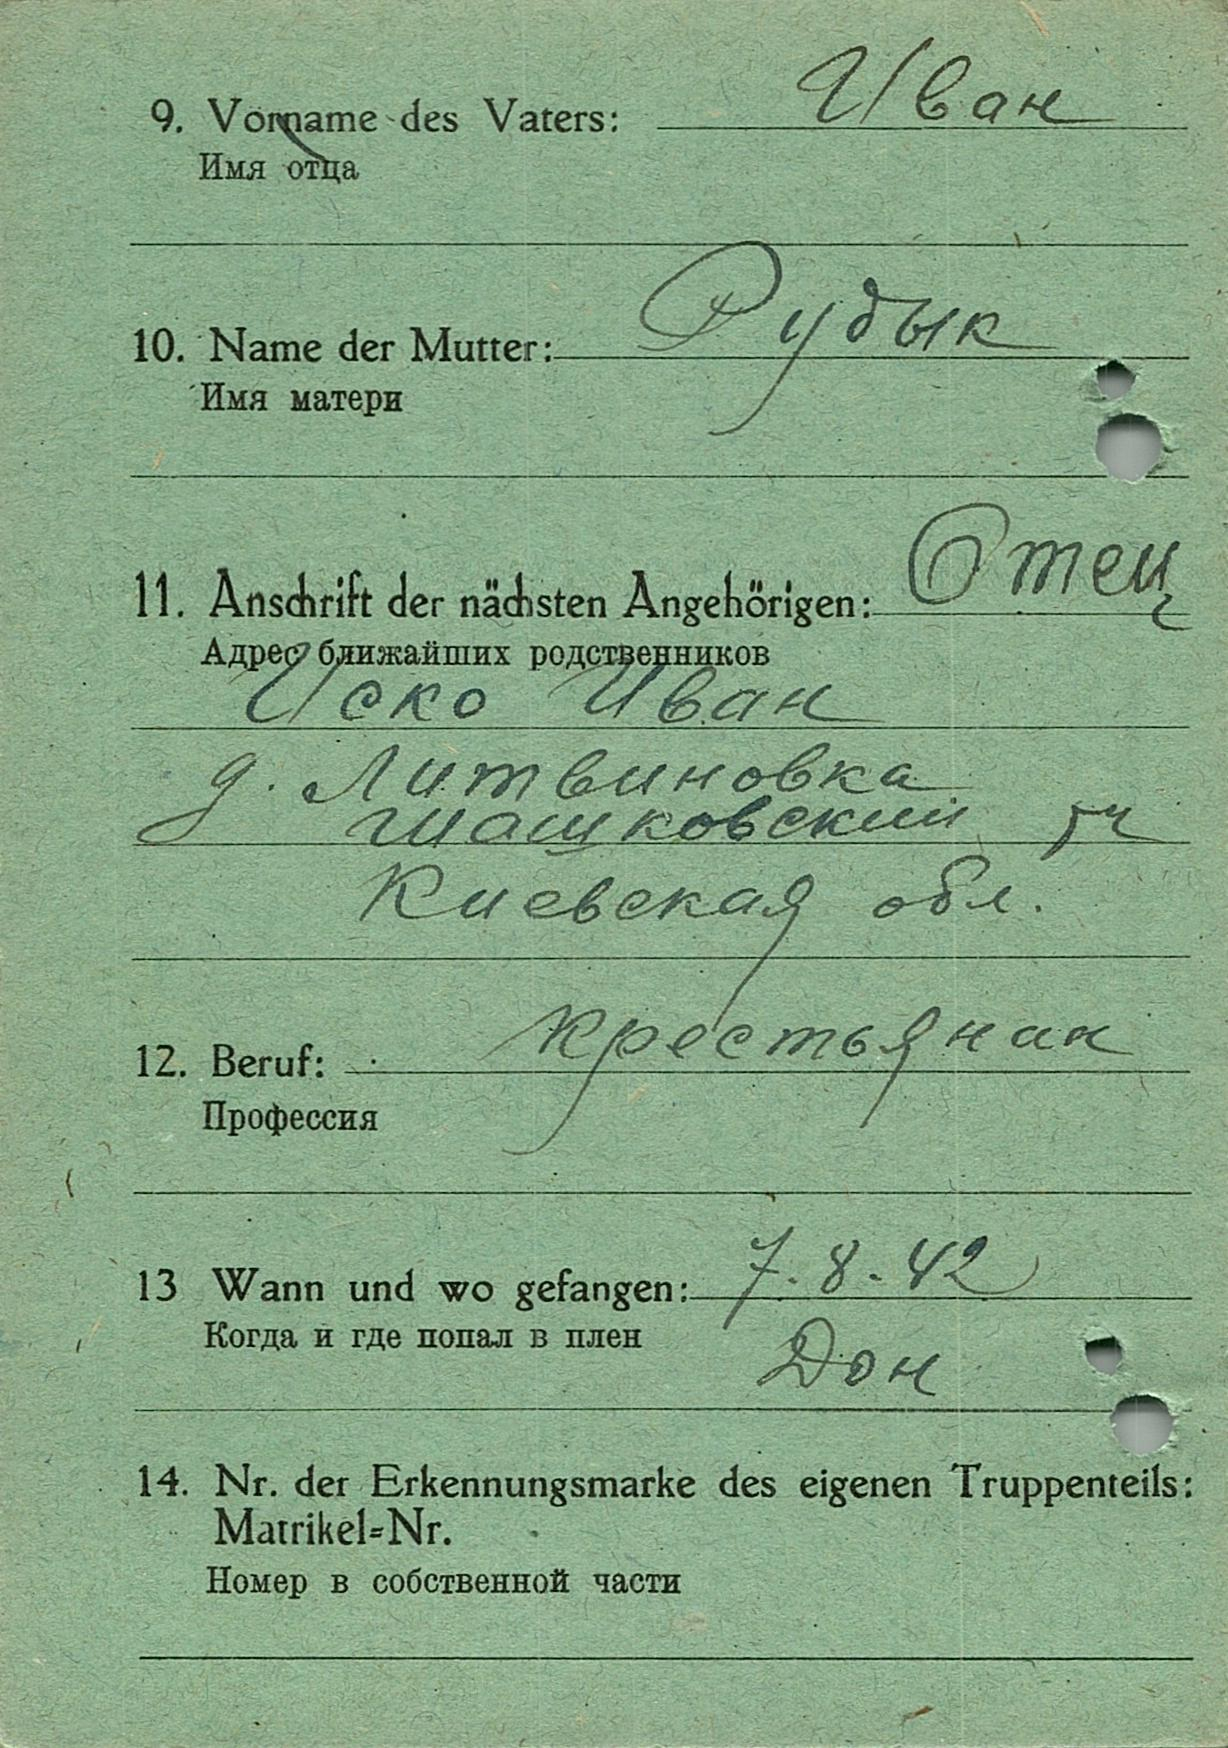 9. Vorname des Vaters: Иван
Имя отца
10. Name der Mutter: Рудык
Имя матери
11. Anschrift der nächsten Angehörigen: Отец
Адрес ближайших родственников
Иско Иван
д. Литвиновка
Шашковский
Киевская обл.
12. Beruf: крестьянин
Профессия
13 Wann und wo gefangen: 7.8.42
Когда и где попал в плен
Дон
14. Nr. der Erkennungsmarke des eigenen Truppenteils:
Matrikel=Nr.
Номер в собственной части